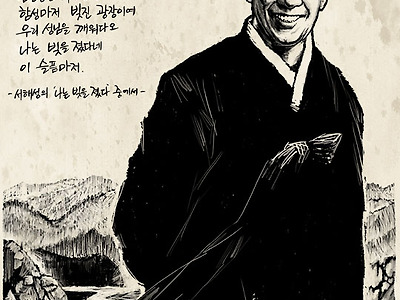 함성마저 빚진 광장이여
우리 설님을 깨워다오
나는 빚을 졌다네
이 슬픔마저.
- 서해성의 '나는 빚을 졌다' 중에서 -